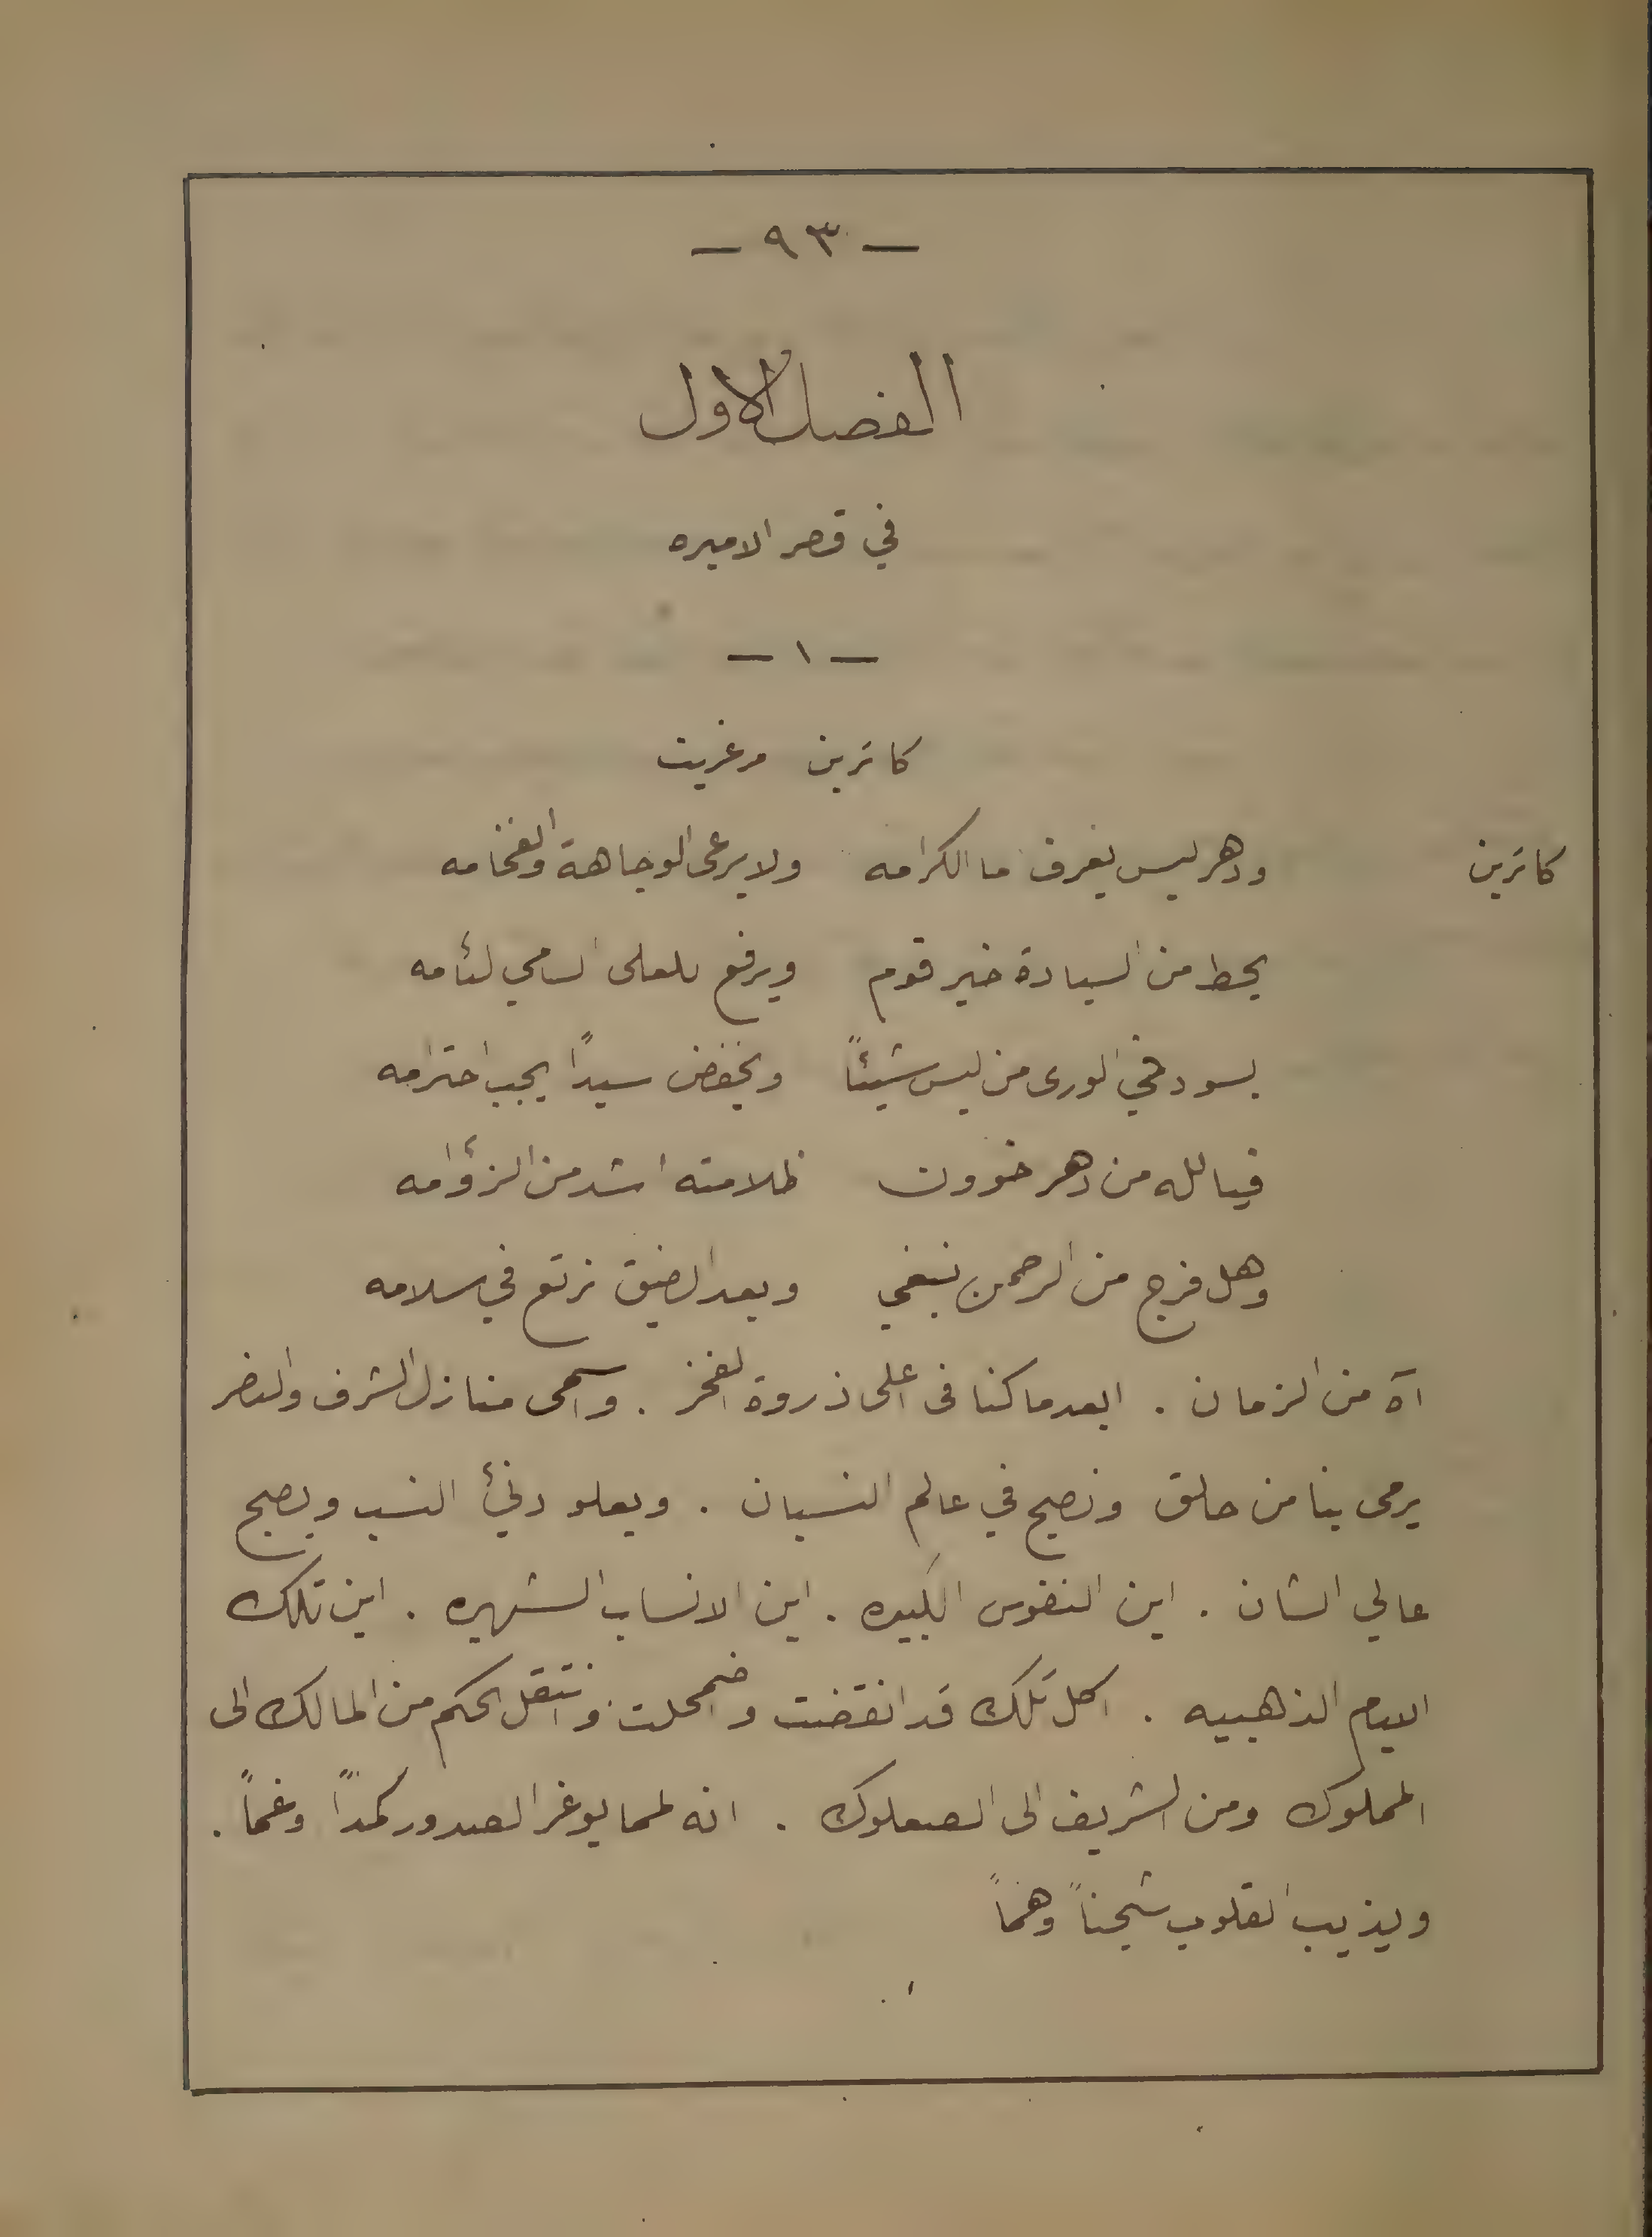 — ٩٣ —
الفصل الاول
في قصر الاميره
— ١ —
كاترين مرغريت
كاترين ودهر ليس يعرف ما الكرامه ولا يرعى الوجاهة والفخامه
يحط من السيادة خير قوم ويرفع للعلى السامي لئامه
يسود في الورى من ليس شيئاً ويخفض سيداً يجب احترامه
فيا لله من دهر خوون ظلامته اشد من الزؤامه
وهل فرج من الرحمن نبغي وبعد الضيق نرتع في سلامه
آه من الزمان . ابعد ما كنا في اعلى ذروة الفخر . واسمى منازل الشرف والنصر
يرمى بنا من حالق ونصبح في عالم النسيان . ويعلو دنئ النسب ويصبح
عالي الشان . اين النفوس الكبيره . اين الانساب الشهيره . اين تلك
الايام الذهبيه . اكل تلك قد انقضت واضمحلت وانتقل الحكم من المالك الى
المملوك ومن الشريف الى الصعلوك . انه لمما يوغر الصدور كمداً وغماً .
ويذيب القلوب شجناً وهماً